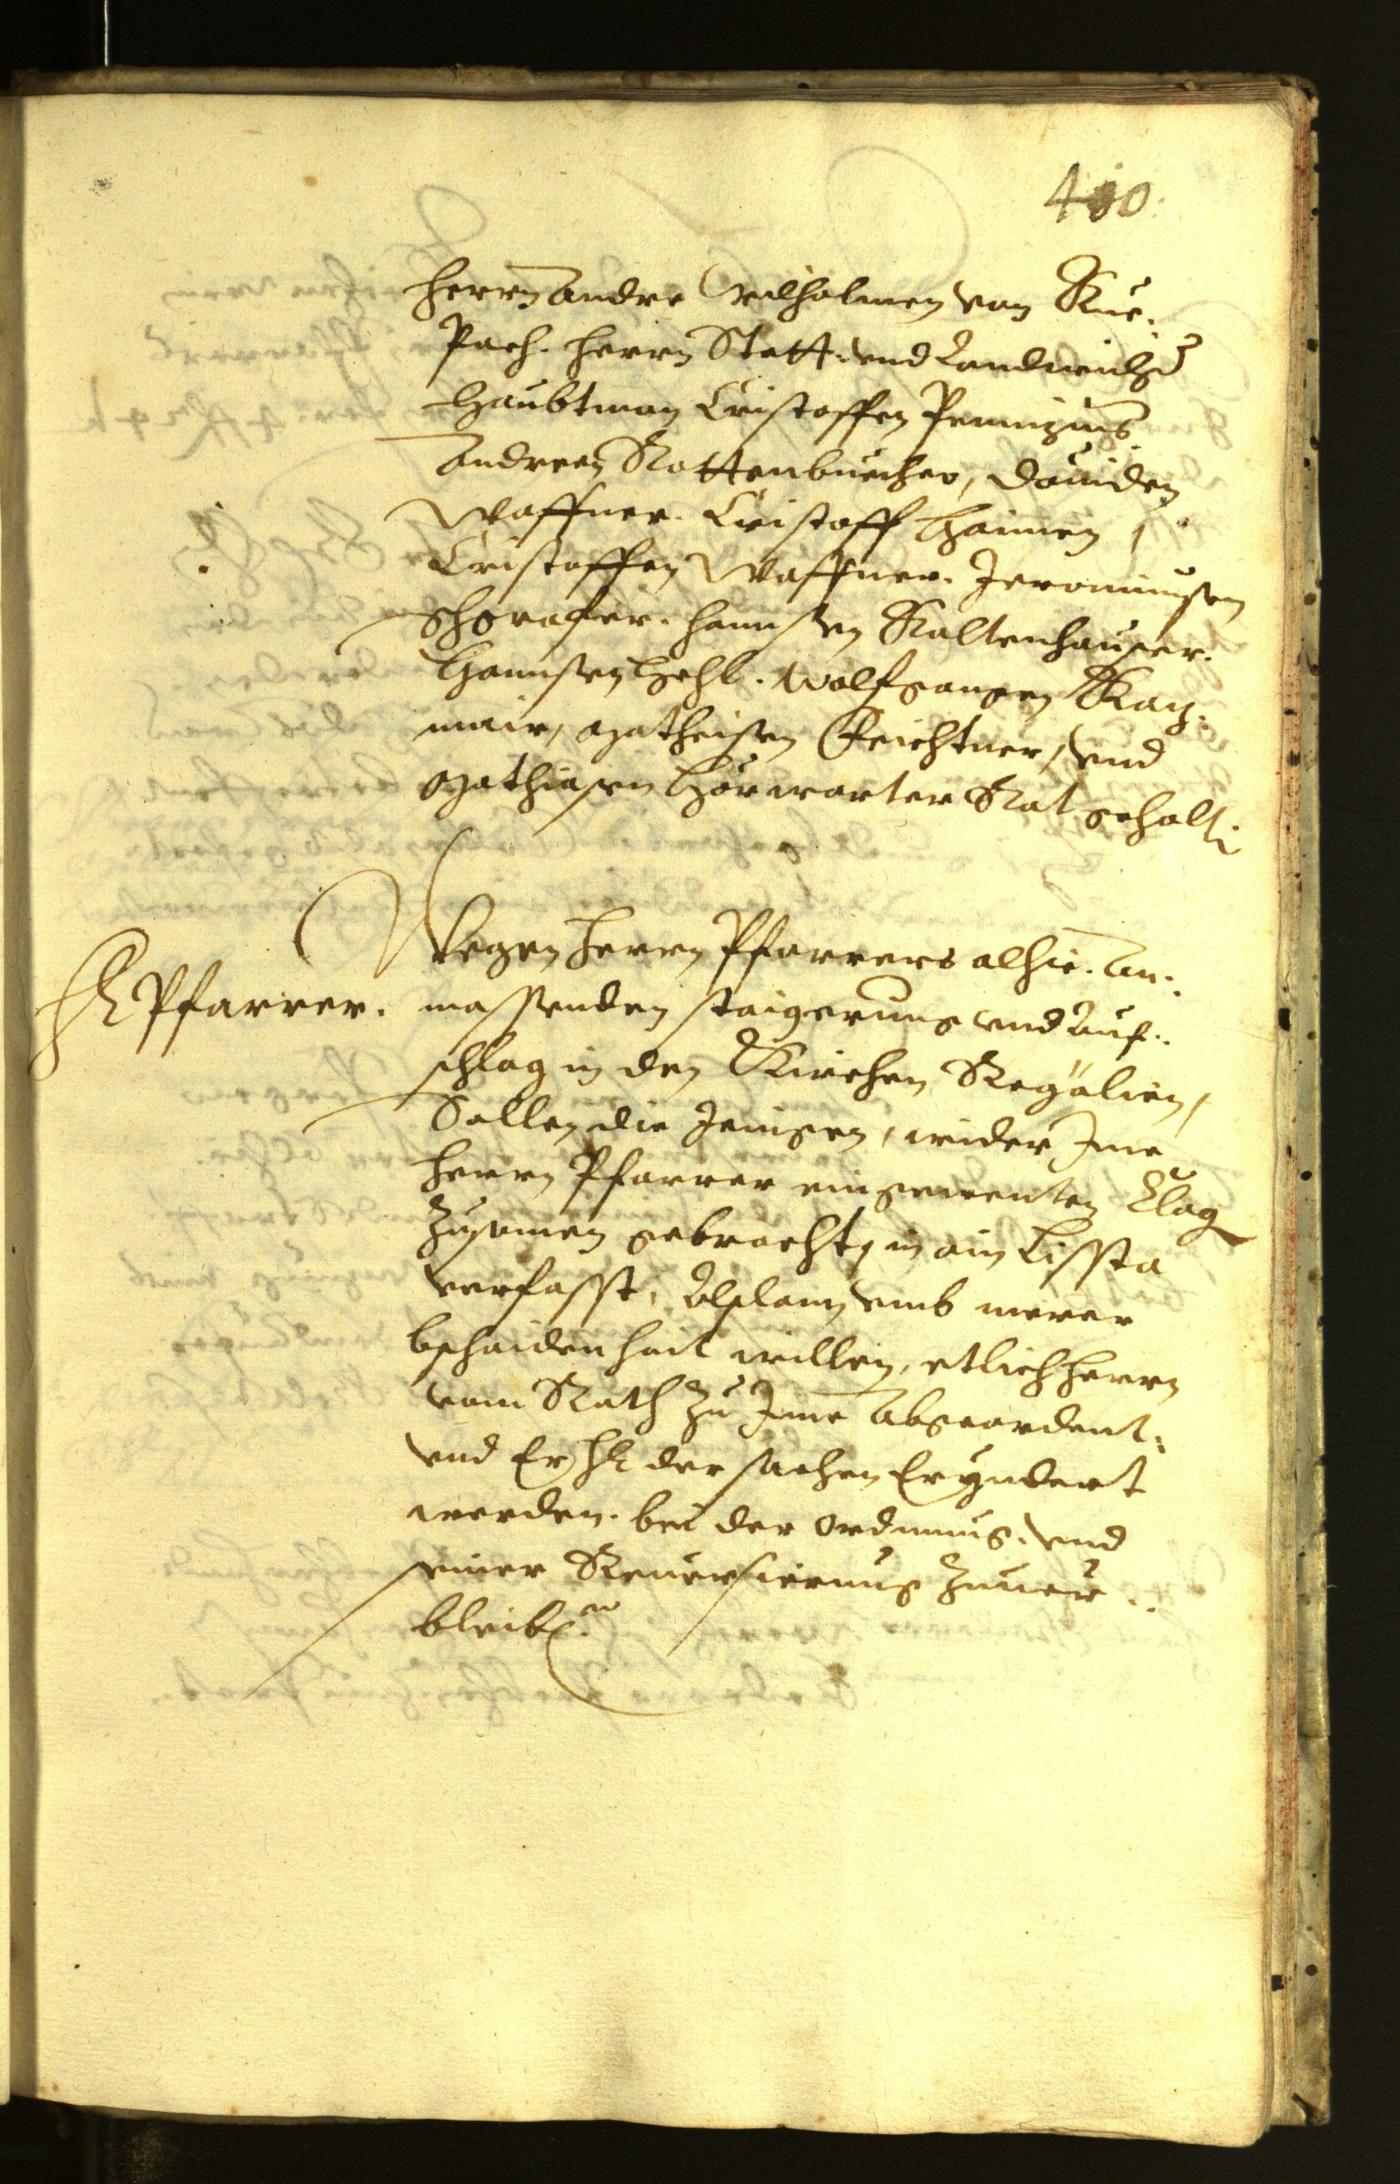 400.
Herrn Andre Wilhalmen von Kue:
Pach. Herrn Statt: vnd Landrichter
Haubtman Cristoffen
Andreen Rottenbuecher, Dauiden
Waffner. Cristoff Haimen,
Cristoffen Waffner. Jeronimußen
Hannsen Kaltenhauser.
Hannsen Hehl. Wolfgangen Kaz:
mair, Matheisen Feichtner, vnd
Mathiasen Hörwarter Rat gehalt:
H Pfarrer.
Wegen Herrn Pfarrers alhie. An:
massenden staigerung vnd Auf:
schlag in den Kirchen Regalien,
Sollen die Jenigen, wider Jme
Herrn Pfarrer eingewenten Clag
zusamen gebracht, in ain Lissta
verfasst, Alsdann vmb merer
bschaidenhait willen, etlich Herrn
vom Rath zu Jme Abgeordent:
vnd Er H: der sachen Eryndert
werden. bei der Ordnung. vnd
seiner Reuersierung zuuer:
bleiben.